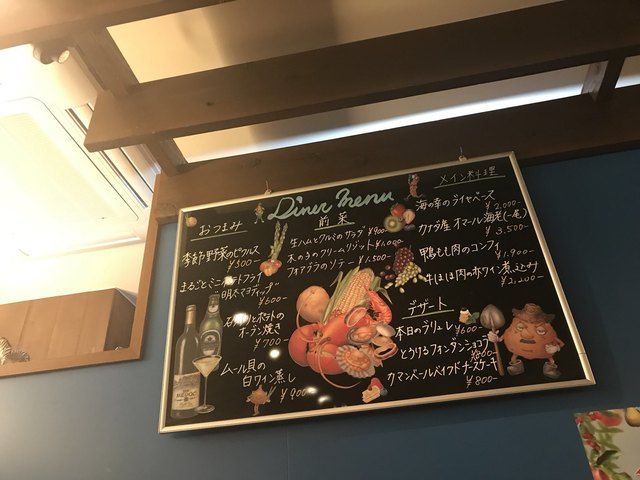 Dinner Menu
おつまみ
季節野菜のピクルス
¥500-
まるごとミニポテトフライ
明太マヨディップ
¥600-
ポテトの
オーブン焼き
¥700-
ムール貝の
白ワイン蒸し
¥900
前菜
生ハムとクルミのサラダ ¥900
木の子のクリームリゾット ¥1,000-
フォアグラのソテー ¥1,500-
メイン料理
海の幸のブイヤベース
¥2,000-
カナダ産 オマール海老(一尾)
¥3,500-
鴨もも肉のコンフィ
¥1,900-
牛ほほ肉の赤ワイン煮込み
¥2,200-
デザート
本日のブリュレ ¥600-
とろけるフォンダンショコラ
¥800-
カマンベールベイクドチーズケーキ
¥800-
MEDOC